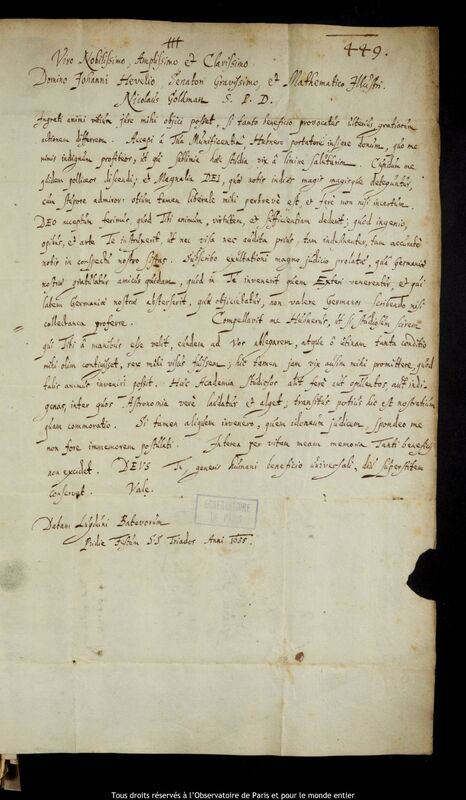 449.
Viro Nobilissimo, Amplissimo et Clarissimo
Domino Johanni Hevelio Senatori Gravissimo, et Mathematico Illustri.
Nicolaus Goldman S. P. D.
Ingrati animi vitium jure mihi objici posset, si tanto beneficio provocatus ulterius, gratiarum
actionem differrem. Accepi à Tuâ Munificentiâ, Hubnero portatore insigne donum, quo me
nimis indignum profiteor, ut qui sublimia haec studia vix à limine salutarim. Cupidum me
quidem polliceor discendi; et Magnalia DEI, quae nobis indies magis magisque deteguntur,
cum stupore admiror: otium tamen liberale mihi perbreve est, et ferè non nisi incertum.
DEO acceptum ferimus, quod Tibi animum, virtutem, et sufficientiam dederit; quòd ingenio,
opibus, et arte Te instruxerit, ut nec visa nec audita prius, tam industriè, tam accuratè
nobis in conspectu nostro sistas. Subscribo exultationi magno judicio prolatae, quâ Germaniae
nostrae gratulabar amicis quibusdam, quòd in Te invenerit quem Exteri venerentur, et qui
labem Germaniae nostrae absterserit, quae objiciebatur, non valere Germanos scribendo nisi
collectanea proferre. Compellavit me Hubnerus, ut si studiosum scirem
qui Tibi à manibus esse velit, eundem ad Vos ablegarem, atque ô utinam tanta conditio
mihi olim contigisset, rex mihi visus fuissem; hic tamen jam vix ausim mihi promittere, quod
talis animus inveniri possit. Haec Academia studiosos alit ferè aut opulentos, aut indi-
genas, inter quos Astronomia verè laudatur et alget; transitus potius hic est nostratium
quam commoratio. Si tamen aliquem invenero, quem idoneum judicem, spondeo me
non fore immemorem postulati. Interea per vitam meam memoria Tanti beneficij
non excidet. DEVS Te, generis humani beneficio universali, diu superstitem
conservet. Vale.
Dabam Lugduni Batavorum
Pridie Festum SS Triados Anni 1655.
OBSERVATOIRE
DE PARIS
Tous droits réservés à l'Observatoire de Paris et pour le monde entier